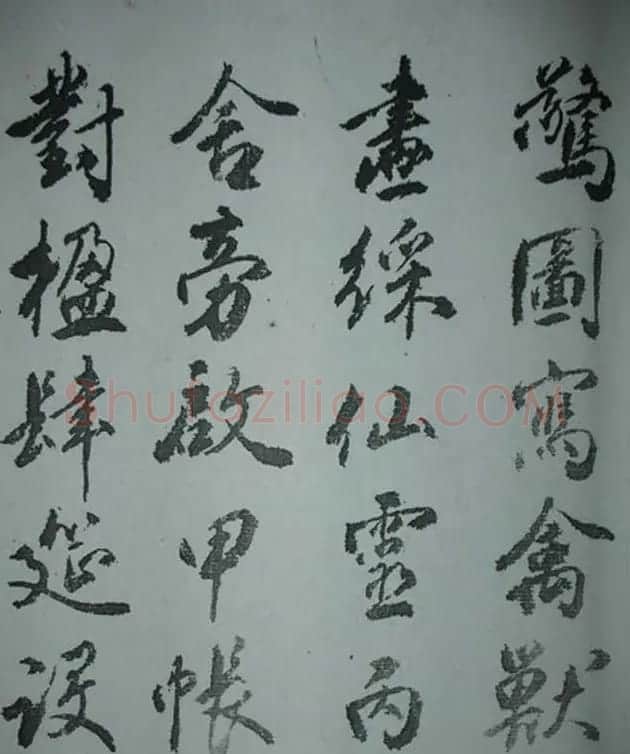 驚圖寫禽獸
畫綵仙靈丙
舍旁啟甲帳
對楹肆筵設
Shufaziliao.COM